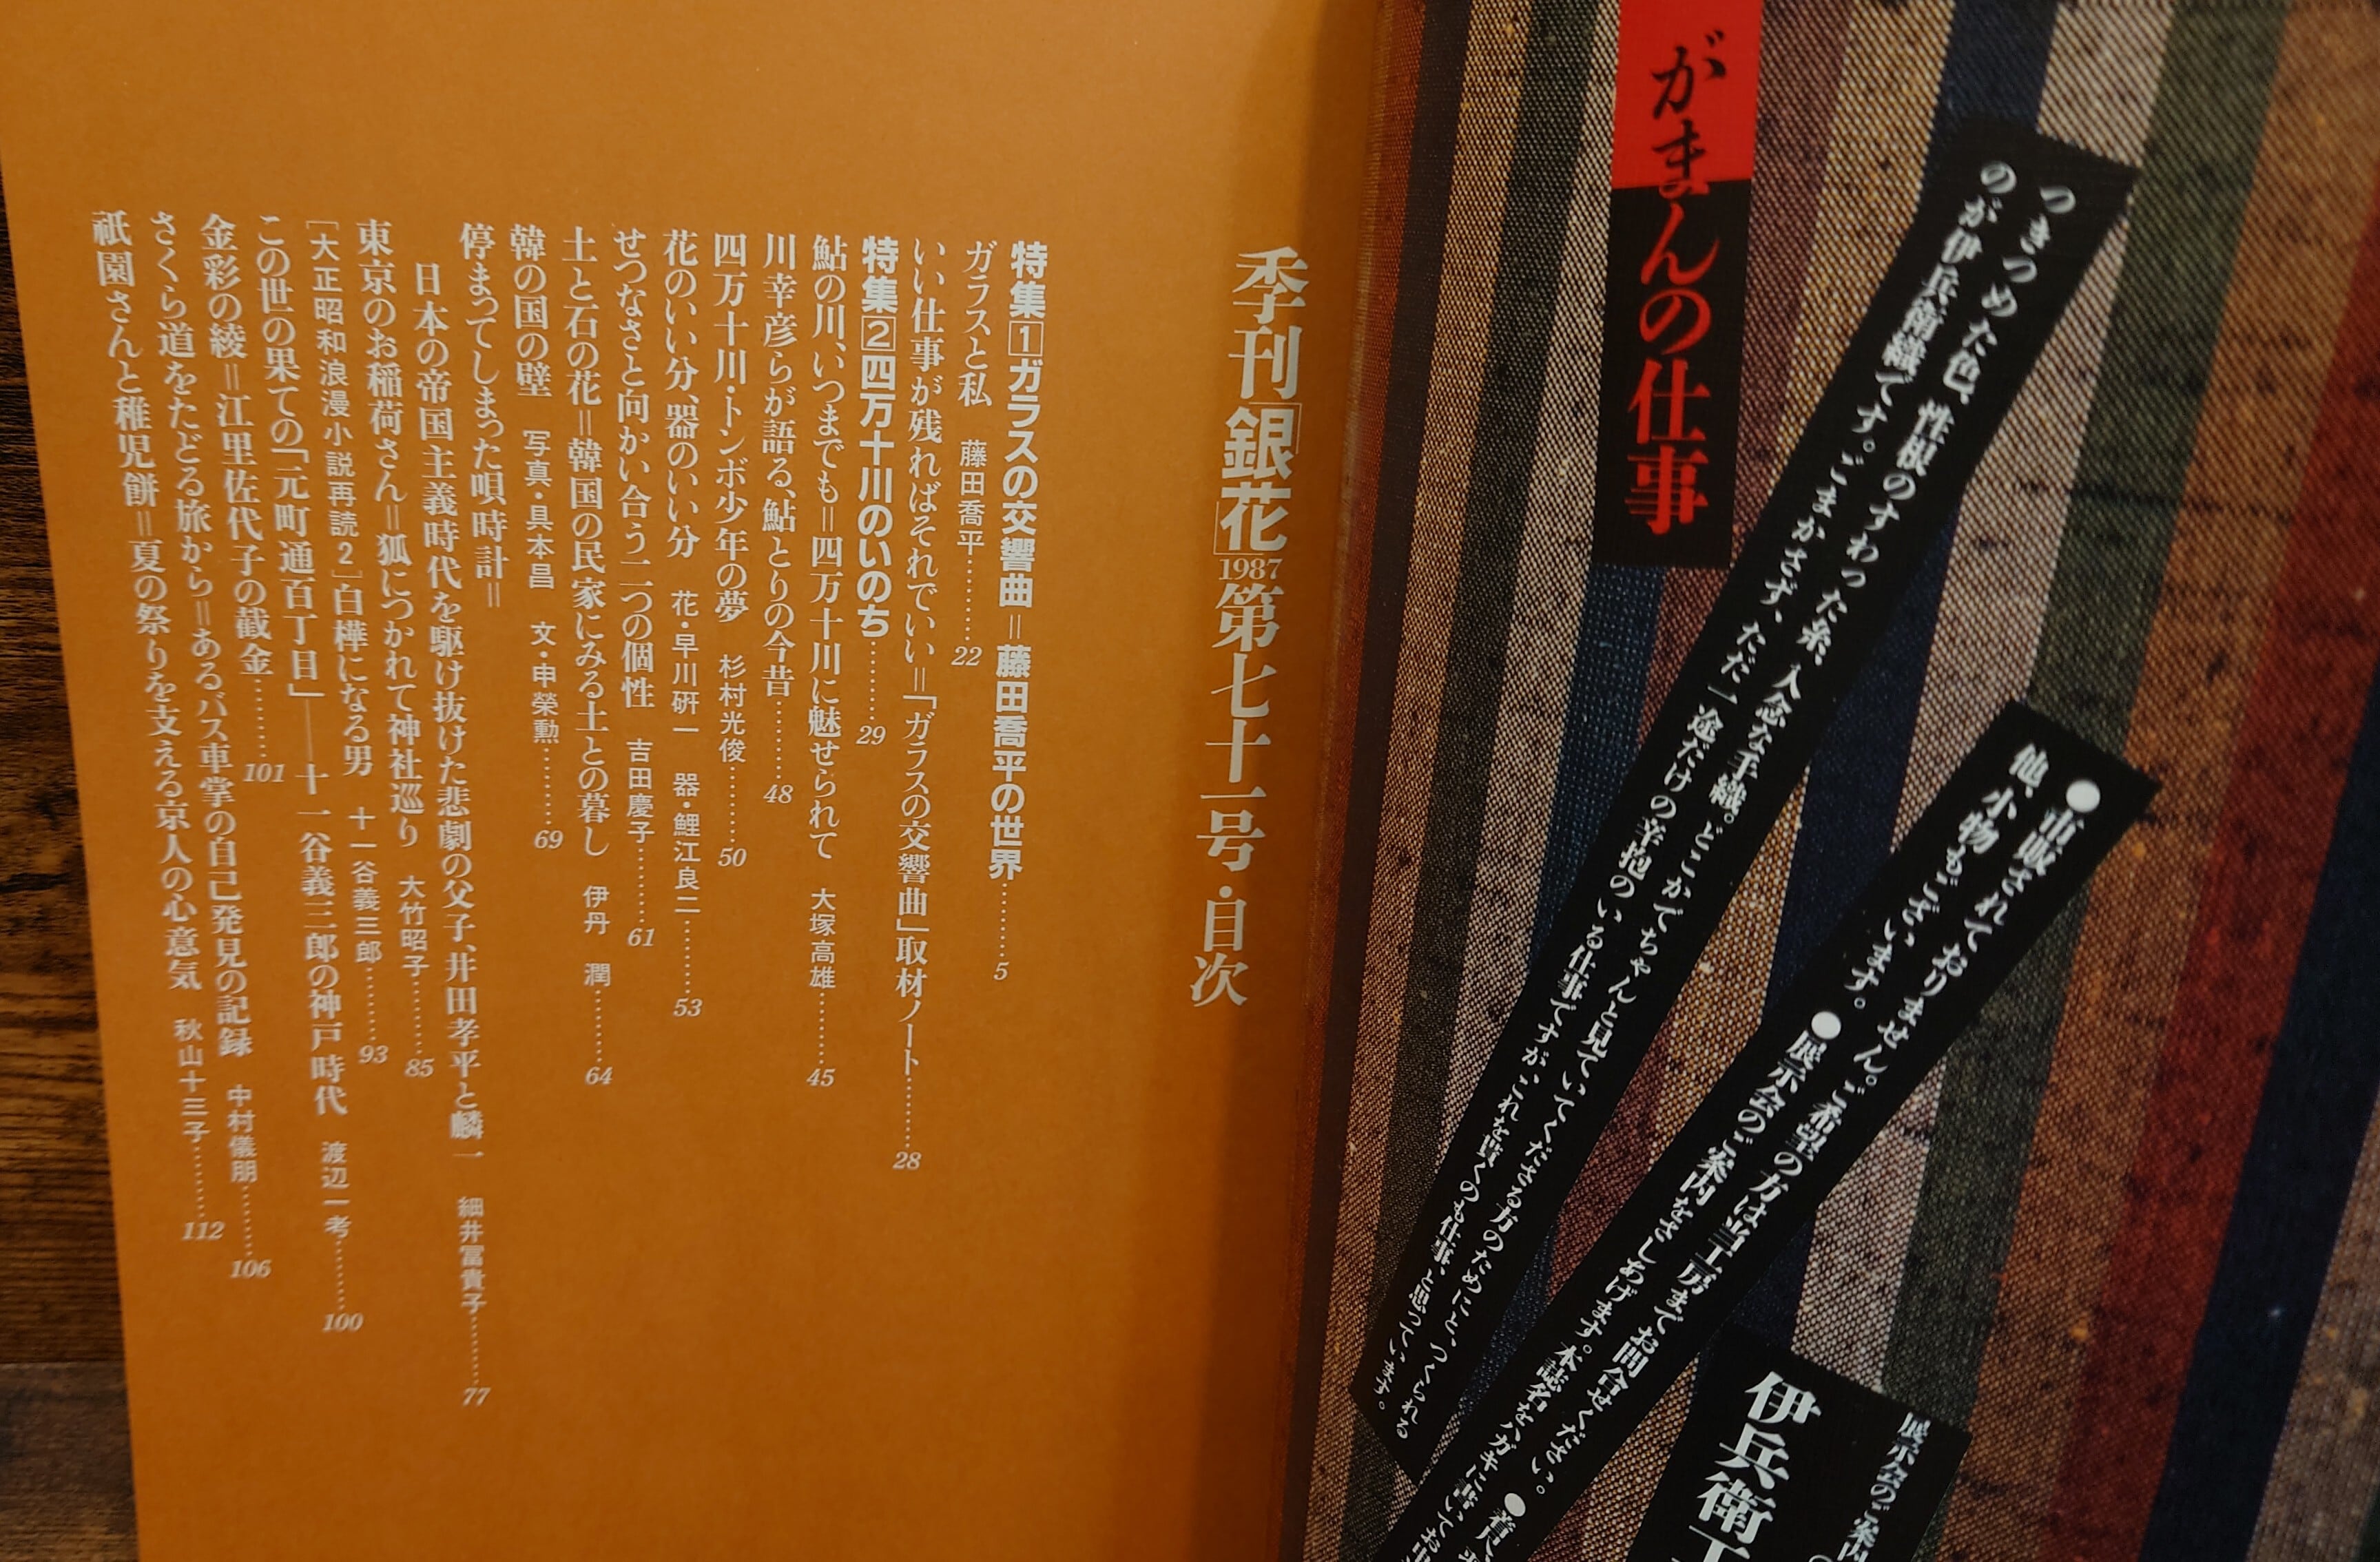 がまんの仕事
つきつめた色、性根のすわった糸、入念な手織。どこかでちゃんと見ていてくださる方のためにと、つくられる
のが伊兵衛織です。ごまかさず、ただ一途だけの辛抱のいる仕事ですが、これを貫くのも仕事、と思っています。
●市販されておりません。ご希望の方は当工房までお問合せください。●着
他、小物もございます。●展示会のご案内をさしあげます。本誌名を、ハガキに書いてお
展示会のご案内
伊兵衛工
季刊「銀花」1987第七十一号・目次
特集1ガラスの交響曲＝藤田喬平の世界………5
ガラスと私 藤田喬平………22
いい仕事が残ればそれでいい＝「ガラスの交響曲」取材ノート………28
特集2四万十川のいのち………29
鮎の川、いつまでも＝四万十川に魅せられて 大塚高雄………45
川幸彦らが語る、鮎とりの今昔………48
四万十川・トンボ少年の夢 杉村光俊………50
花のいい分、器のいい分 花・早川研一 器・鯉江良二………53
せつなさと向かい合う二つの個性 吉田慶子………61
土と石の花＝韓国の民家にみる土との暮し 伊丹 潤………64
韓の国の壁 写真・具本昌 文・申榮勲………69
停まってしまった唄時計＝
日本の帝国主義時代を駆け抜けた悲劇の父子、井田孝平と麟一 細井冨貴子………77
東京のお稲荷さん＝狐につかれて神社巡り 大竹昭子………85
［大正昭和浪漫小説再読2］白樺になる男 十一谷義三郎………93
この世の果ての「元町通百丁目」――十一谷義三郎の神戸時代 渡辺一考………100
金彩の綾＝江里佐代子の截金………101
さくら道をたどる旅から＝あるバス車掌の自己発見の記録 中村儀朋………106
祇園さんと稚児餅＝夏の祭りを支える京人の心意気 秋山十三子………112